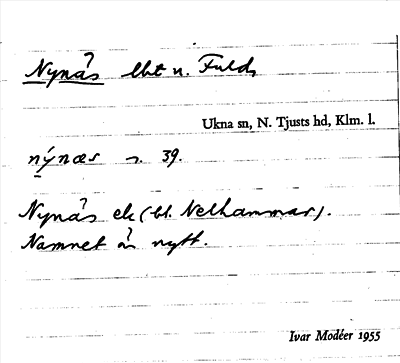 Nynäs lht u. Fulds
Ukna sn, N. Tjusts hd, Klm. l.
nýnæs n. 39.
Nynäs ek (bl. Nelhammar).
Namnet är nytt.
Ivar Modéer 1955